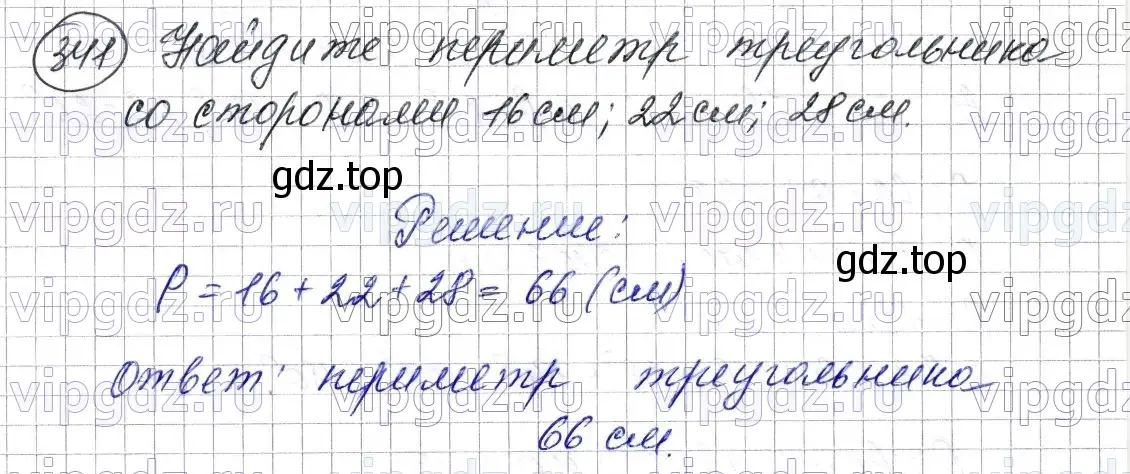 341 Найдите периметр треугольника
со сторонами 16 см; 22 см; 28 см.
gdz.top
Решение:
gdz.top
P = 16 + 22 + 28 = 66 (см)
Ответ: периметр треугольника
66 см.
vipgdz.ru